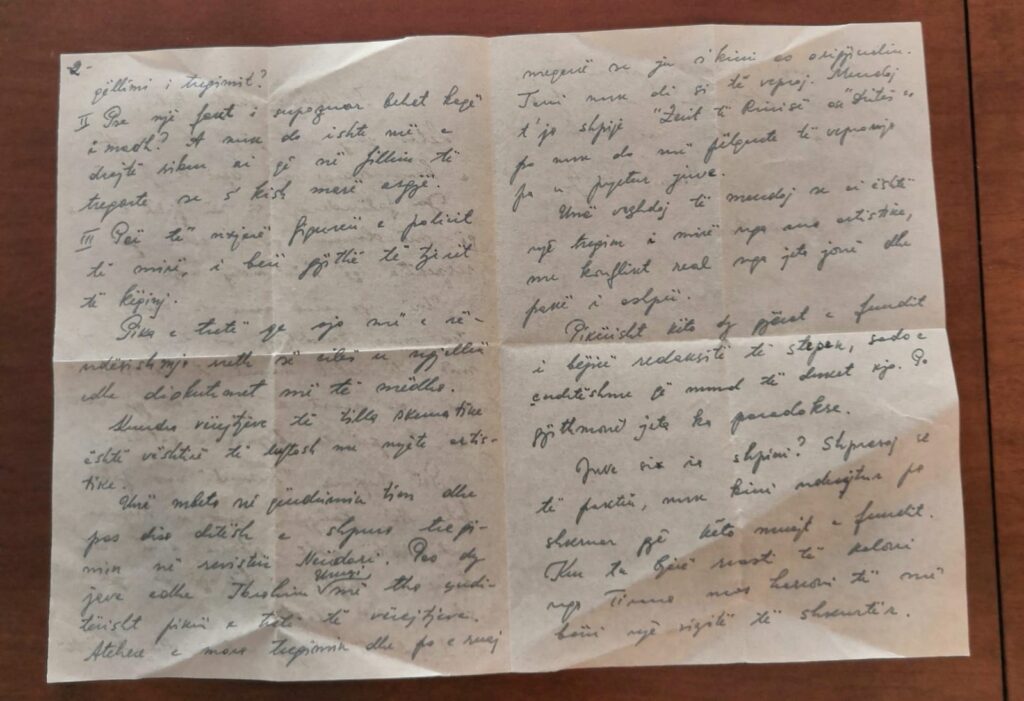 2-
qëllimi i tregimit?
II Pse një fakt i supozuar behet kaqë
i madh? A nuk do ishte më e
drejtë sikur ai që në fillim të
tregonte se s'kish marë asgjë.
III Për të nxjerë figurën e policit
të mirë, i bëri gjithë të tjerët
të këqinj.
Pika e tretë qe ajo më e rë-
ndësishmja rreth së cilës u ngjallën
edhe diskutimet më të mëdha.
Kundra vërejtjeve të tilla skematike
është vështirë të luftosh me mjete artis-
tike.
Unë mbeta në qëndrimin tim dhe
pas disa ditësh e shpura tregi-
min në revistën Nëndori. Pas dy
jave edhe Ibrahim Uruçi më tha çudi-
tërisht pikën e tretë të vërejtjeve.
Atehere e mora tregimin dhe po e ruaj
megenë se ju s'kini as origjinalin.
Tani nuk di si të veproj. Mendoj
t'ja shpije "Zërit të Rinisë ose "Dritës"
po nuk do më pëlqente të veproja
pa u pyetur juve.
Unë vazhdoj të mendoj se ai është
një tregim i mirë nga ana artistike,
me konflikt real nga jeta jonë dhe
pakë i ashpër.
Pikërisht këto dy gjërat e fundit
i bëjnë redaksitë të stepen, sado e
çuditëshme që mund të duket kjo. Po
gjithmonë jeta ka paradokse.
Juve si ia shpini? Shpresoj se
të paktën, nuk kini ndenjtur pa
shkruar gjë këto muajt e fundit.
Kur ta bjerë rasti të kaloni
nga Tirana mos harroni të më
bëni një vizitë të shkurtër.